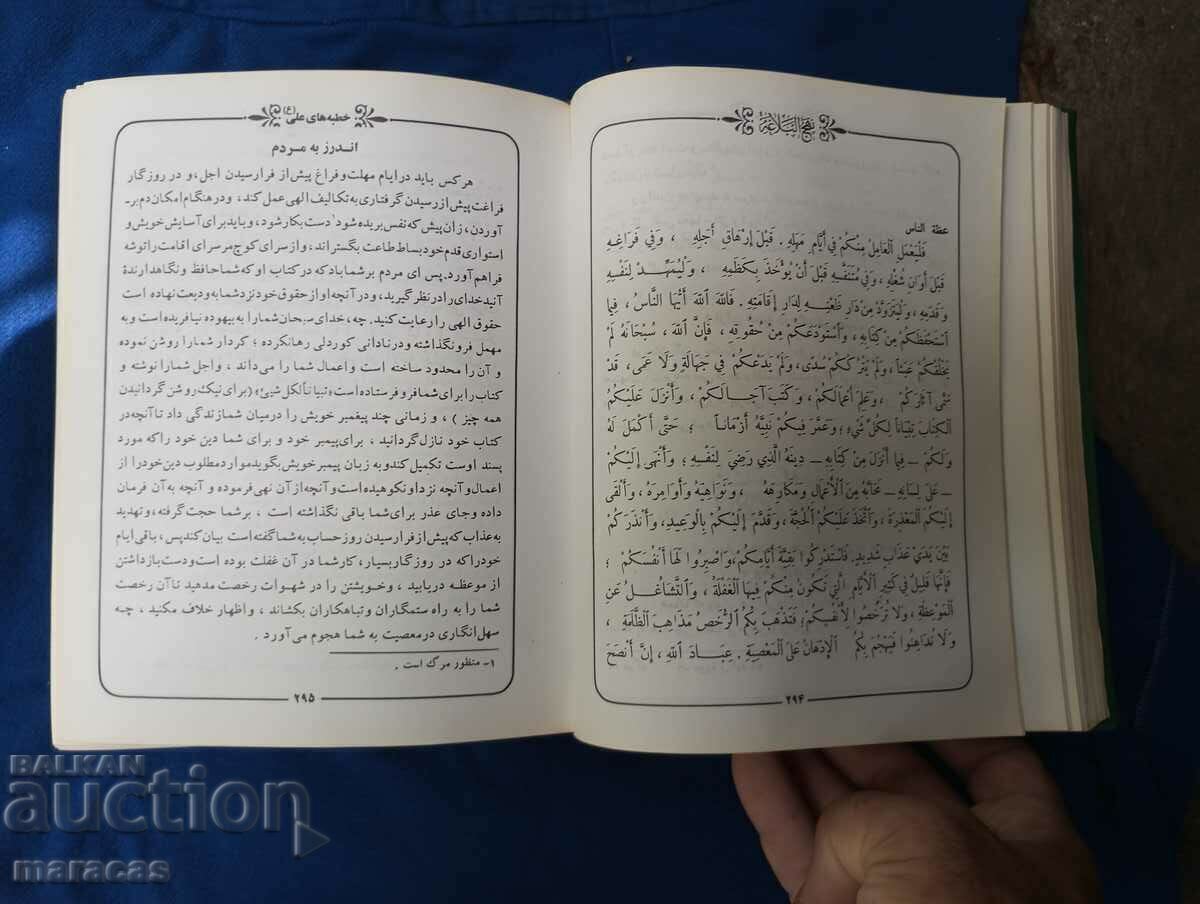 نهج البلاغة
عظة الناس
فَلْيَعْمَلِ ٱلْعَامِلُ مِنْكُمْ فِي أَيَّامِ مَهَلِهِ . قَبْلَ إِرْهَاقِ أَجَلِهِ ، وَفِي فَرَاغِهِ
قَبْلَ أَوَانِ شُغْلِهِ ، وَفِي مُتَنَفَّسِهِ قَبْلَ أَنْ يُؤْخَذَ بِكَظَمِهِ ، وَلْيُمَهِّدْ لِنَفْسِهِ
وَقَدَمِهِ ، وَلْيَتَزَوَّدْ مِنْ دَارِ ظَعْنِهِ لِدَارِ إِقَامَتِهِ . فَٱللهَ ٱللهَ أَيُّهَا ٱلنَّاسُ ، فِيمَا
ٱسْتَحْفَظَكُمْ مِنْ كِتَابِهِ ، وَٱسْتَوْدَعَكُمْ مِنْ حُقُوقِهِ ، فَإِنَّ ٱللهَ ، سُبْحَانَهُ لَمْ
يَخْلُقْكُمْ عَبَثاً ، وَلَمْ يَتْرُكْكُمْ سُدًى ، وَلَمْ يَدَعْكُمْ فِي جَهَالَةٍ وَلَا عَمًى، قَدْ
سَمَّى آثَارَكُمْ ، وَعَلِمَ أَعْمَالَكُمْ ، وَكَتَبَ آجَالَكُمْ ، وَأَنْزَلَ عَلَيْكُمُ
ٱلْكِتَابَ تِبْيَاناً لِكُلِّ شَيْءٍ ؛ وَعَمَّرَ فِيكُمْ نَبِيَّهُ أَزْمَاناً ؛ حَتَّى أَكْمَلَ لَهُ
وَلَكُمْ – فِيمَا أَنْزَلَ مِنْ كِتَابِهِ – دِينَهُ ٱلَّذِي رَضِيَ لِنَفْسِهِ ؛ وَأَنْهَى إِلَيْكُمْ
– عَلَى لِسَانِهِ – مَحَابَّهُ مِنَ ٱلْأَعْمَالِ وَمَكَارِهَهُ ، وَنَوَاهِيَهُ وَأَوَامِرَهُ ، وَأَلْقَى
إِلَيْكُمُ ٱلْمَعْذِرَةَ ، وَٱتَّخَذَ عَلَيْكُمُ ٱلْحُجَّةَ ، وَقَدَّمَ إِلَيْكُمْ بِٱلْوَعِيدِ، وَأَنْذَرَكُمْ
بَيْنَ يَدَيْ عَذَابٍ شَدِيدٍ. فَٱسْتَدْرِكُوا بَقِيَّةَ أَيَّامِكُمْ، وَٱصْبِرُوا لَهَا أَنْفُسَكُمْ ؛
فَإِنَّهَا قَلِيلٌ فِي كَثِيرِ ٱلْأَيَّامِ ٱلَّتِي تَكُونُ مِنْكُمْ فِيهَا ٱلْغَفْلَةُ ، وَٱلتَّشَاغُلُ عَنِ
ٱلْمَوْعِظَةِ ، وَلَا تُرَخِّصُوا لِأَنْفُسِكُمْ؛ فَتَذْهَبَ بِكُمُ ٱلرُّخَصُ مَذَاهِبَ ٱلظَّلَمَةِ ،
وَلَا تُدَاهِنُوا فَيَهْجُمَ بِكُمُ ٱلْإِدْهَانُ عَلَى ٱلْمَعْصِيَةِ . عِبَادَ ٱللهِ ، إِنَّ أَنْصَحَ
۲۹۴
خطبه های علی (ع)
اندرز به مردم
هر کس باید در ایام مهلت و فراغ پیش از فرا رسیدن اجل، و در روزگار
فراغت پیش از رسیدن گرفتاری به تکالیف الهی عمل کند ، و در هنگام امکان دم بر ـ
آوردن، زان پیش که نفس بریده شود¹ دست بکار شود ، و باید برای آسایش خویش و
استواری قدم خود بساط طاعت بگستراند، و از سرای کوچ مر سرای اقامت را توشه
فراهم آورد. پس ای مردم بر شما باد که در کتاب او که شما حافظ و نگاهدارندهٔ
آنید خدای را در نظر گیرید، و در آنچه او از حقوق خود نزد شما به ودیعت نهاده است
حقوق الهی را رعایت کنید. چه، خدای سبحان شما را به بیهوده نیافریده است و به
مهمل فرو نگذاشته و در نادانی کوردلی رها نکرده ؛ کردار شما را روشن نموده
و آن را محدود ساخته است و اعمال شما را می داند ، و اجل شما را نوشته و
کتاب را برای شما فرو فرستاده است «تبیاناً لکل شیئ» (برای نیک روشن گردانیدن
همه چیز ) ، و زمانی چند پیغمبر خویش را درمیان شما زندگی داد تا آنچه در
کتاب خود نازل گردانید ، برای پیمبر خود و برای شما دین خود را که مورد
پسند اوست تکمیل کند و به زبان پیمبر خویش بگوید موارد مطلوب دین خود را از
اعمال و آنچه نزد او نکوهیده است و آنچه از آن نهی فرموده و آنچه به آن فرمان
داده و جای عذر برای شما باقی نگذاشته است ، بر شما حجت گرفته، و تهدید
به عذاب که پیش از فرا رسیدن روز حساب به شما گفته است بیان کند پس، باقی ایام
خود را که در روزگار بسیار، کار شما در آن غفلت بوده است و دست بازداشتن
از موعظه دریابید ، و خویشتن را در شهوات رخصت مدهید تا آن رخصت
شما را به راه ستمگران و تباهکاران بکشاند ، و اظهار خلاف مکنید ، چه
سهل انگاری در معصیت به شما هجوم می آورد .
۱ـ منظور مرگ است .
۲۹۵
BALKAN
auction
maracas